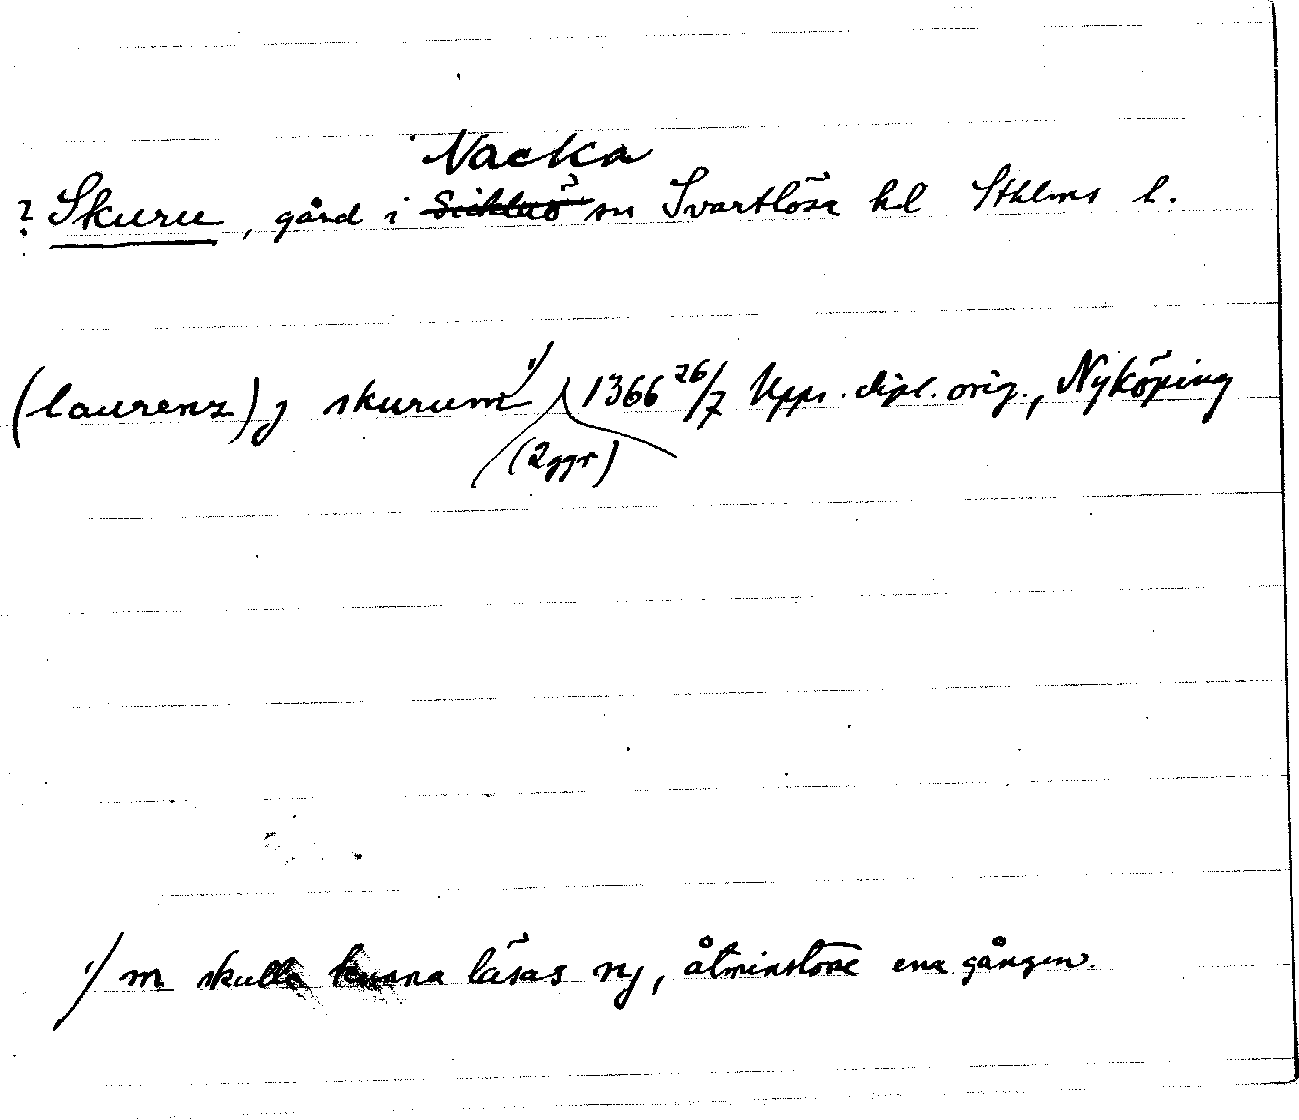 Nacka
? Skuru, gård i Sicklaö sn Svartlösa hd Sthlms l.
(laurenz) j skurum 1/ 1366 26/7 Upps. dipl. orig., Nyköping
(2ggr)
1/ m skulle kunna läsas nj, åtminstone ena gången.